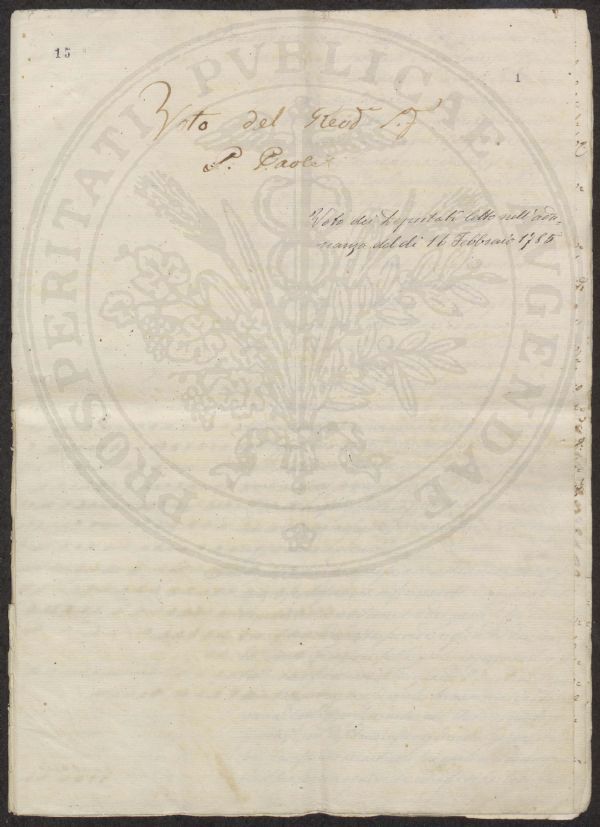 15
1
Voto del Reod.
P. Paoli
Voto dei Deputati letto nell'adu-
nanza del dì 16 Febbraio 1785
PROSPERITATI PVBLICAE AVGENDAE